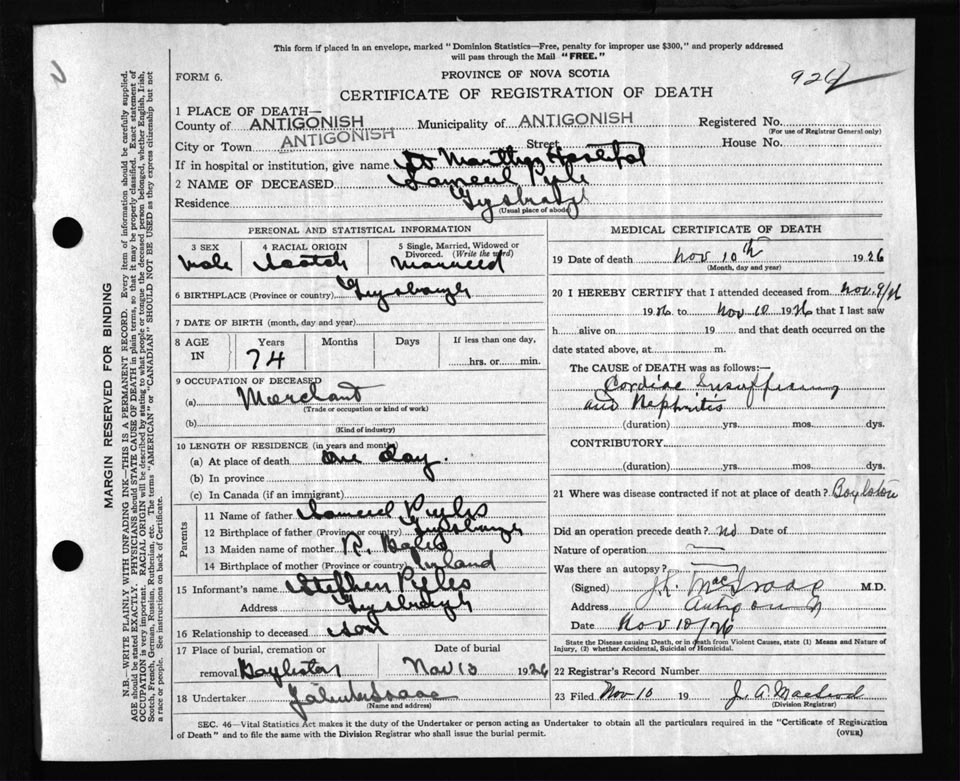 This form if placed in an envelope, marked "Dominion Statistics—Free, penalty for improper use $300," and properly addressed
will pass through the Mail "FREE."
FORM 6.
PROVINCE OF NOVA SCOTIA
924
CERTIFICATE OF REGISTRATION OF DEATH
1 PLACE OF DEATH—
County of ANTIGONISH Municipality of ANTIGONISH Registered No.
(For use of Registrar General only)
City or Town ANTIGONISH Street House No.
If in hospital or institution, give name St Marthas Hospital
2 NAME OF DECEASED
Residence Guysborough
(Usual place of abode)
PERSONAL AND STATISTICAL INFORMATION
3 SEX 4 RACIAL ORIGIN 5 Single, Married, Widowed or Divorced. (Write the word)
Male Scotch Married
6 BIRTHPLACE (Province or country) Guysborough
7 DATE OF BIRTH (month, day and year)
8 AGE IN Years Months Days If less than one day,
74 hrs. or min.
9 OCCUPATION OF DECEASED
(a) Merchant
(Trade or occupation or kind of work)
(b)
(Kind of industry)
10 LENGTH OF RESIDENCE (in years and months)
(a) At place of death one day.
(b) In province
(c) In Canada (if an immigrant)
Parents
11 Name of father
12 Birthplace of father (Province or country) Guysborough
13 Maiden name of mother R.
14 Birthplace of mother (Province or country) Ireland
15 Informant's name Stephen Pyles
Address Guysborough
16 Relationship to deceased son
17 Place of burial, cremation or Date of burial
removal Boylston Nov 13 1926
18 Undertaker
(Name and address)
MEDICAL CERTIFICATE OF DEATH
19 Date of death Nov 10th 1926
(Month, day and year)
20 I HEREBY CERTIFY that I attended deceased from Nov. 9/26
1926 to Nov 10 1926 that I last saw
h alive on 19 and that death occurred on
date stated above, at m.
The CAUSE OF DEATH was as follows:—
Cardiac Insufficiency
and Nephritis
(duration) yrs. mos. dys.
CONTRIBUTORY
(duration) yrs. mos. dys.
21 Where was disease contracted if not at place of death? Boylston
Did an operation precede death? no Date of
Nature of operation
Was there an autopsy?
(Signed) J.R. MacIsaac M.D.
Address Antigonish
Date Nov 10/26
State the Disease causing Death, or in death from Violent Causes, state (1) Means and Nature of
Injury, (2) whether Accidental, Suicidal or Homicidal.
22 Registrar's Record Number
23 Filed Nov 10 19 J. A. Macleod
(Division Registrar)
SEC. 46—Vital Statistics Act makes it the duty of the Undertaker or person acting as Undertaker to obtain all the particulars required in the "Certificate of Registration
of Death" and to file the same with the Division Registrar who shall issue the burial permit.
(OVER)
MARGIN RESERVED FOR BINDING
N.B.—WRITE PLAINLY WITH UNFADING INK—THIS IS A PERMANENT RECORD. Every item of information should be carefully supplied.
AGE should be stated EXACTLY. PHYSICIANS should STATE CAUSE OF DEATH in plain terms, so that it may be properly classified. Exact statement of
OCCUPATION is very important. RACIAL ORIGIN will be described by stating to what people or tongue the deceased person belonged, whether English, Irish,
Scotch, French, German, Russian, Ruthenian, etc. The terms "AMERICAN" or "CANADIAN" SHOULD NOT BE USED as they express citizenship but not
a race or people. See instructions on back of Certificate.